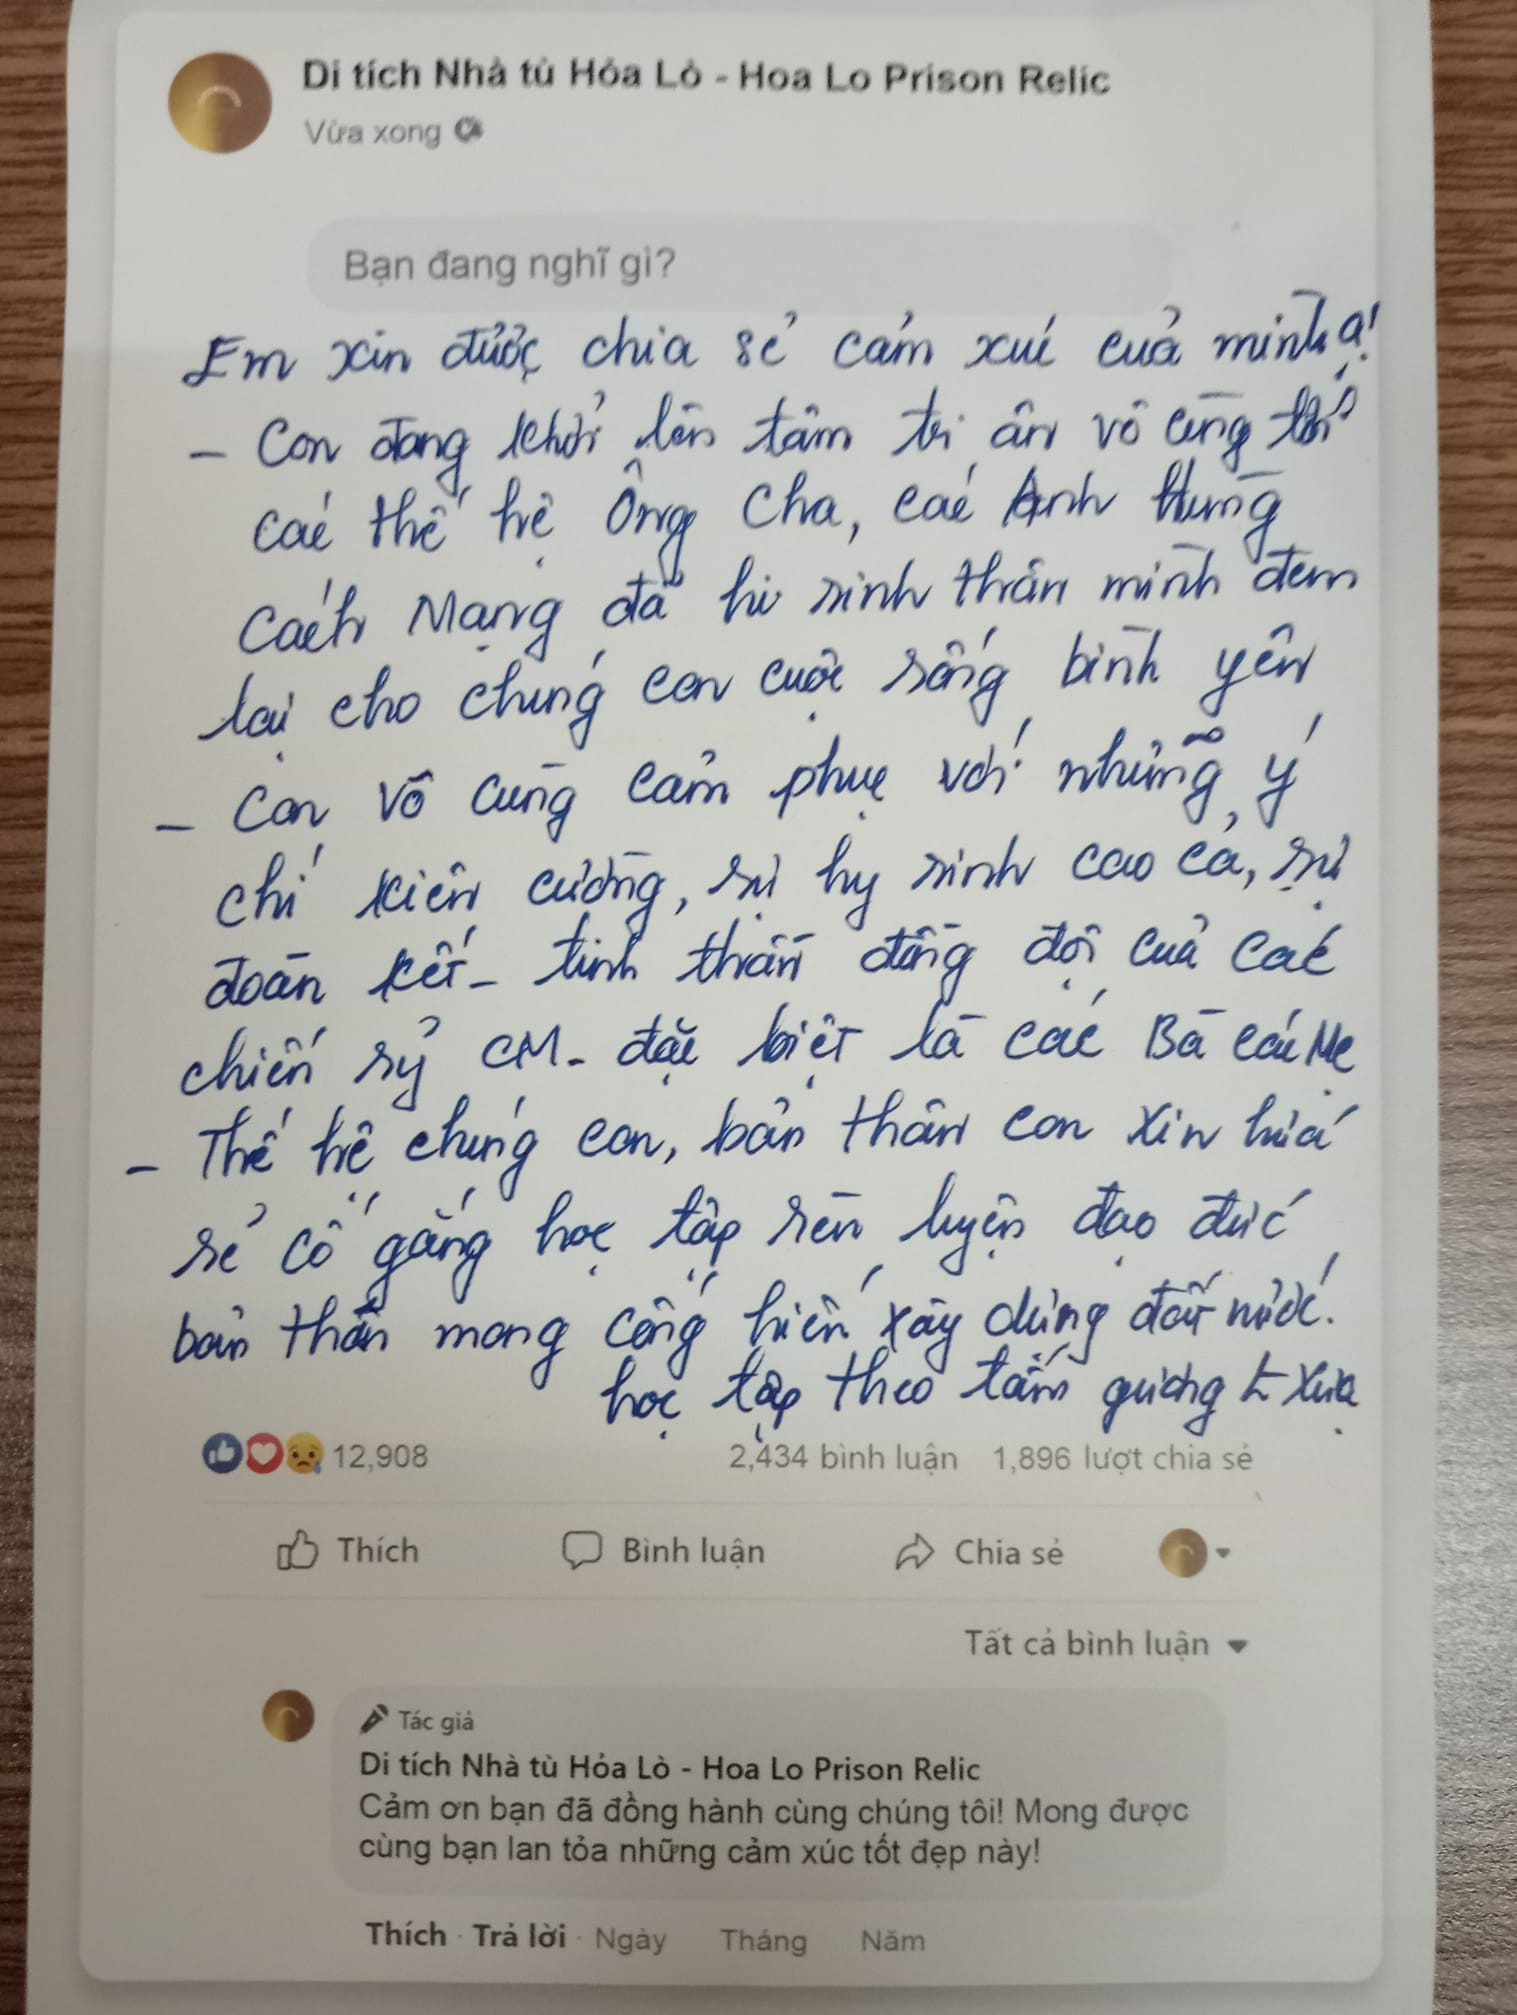 Di tích Nhà tù Hỏa Lò - Hoa Lo Prison Relic
Vừa xong
Bạn đang nghĩ gì?
Em xin được chia sẻ cảm xúc của mình ạ!
- Con đang khởi lên tâm tri ân vô cùng tới
các thế hệ Ông Cha, các Anh Hùng
Cách Mạng đã hi sinh thân mình đem
lại cho chúng con cuộc sống bình yên
- Con vô cùng cảm phục với những ý
chí kiên cường, sự hy sinh cao cả, sự
đoàn kết - tinh thần đồng đội của các
chiến sỹ CM - đặc biệt là các Bà các Mẹ
- Thế hệ chúng con, bản thân con xin hứa
sẻ cố gắng học tập rèn luyện đạo đức
bản thân mong cống hiến xây dựng đất nước.
học tập theo tấm gương xưa
12,908
2,434 bình luận 1,896 lượt chia sẻ
Thích Bình luận Chia sẻ
Tất cả bình luận
Tác giả
Di tích Nhà tù Hỏa Lò - Hoa Lo Prison Relic
Cảm ơn bạn đã đồng hành cùng chúng tôi! Mong được
cùng bạn lan tỏa những cảm xúc tốt đẹp này!
Thích · Trả lời · Ngày Tháng Năm